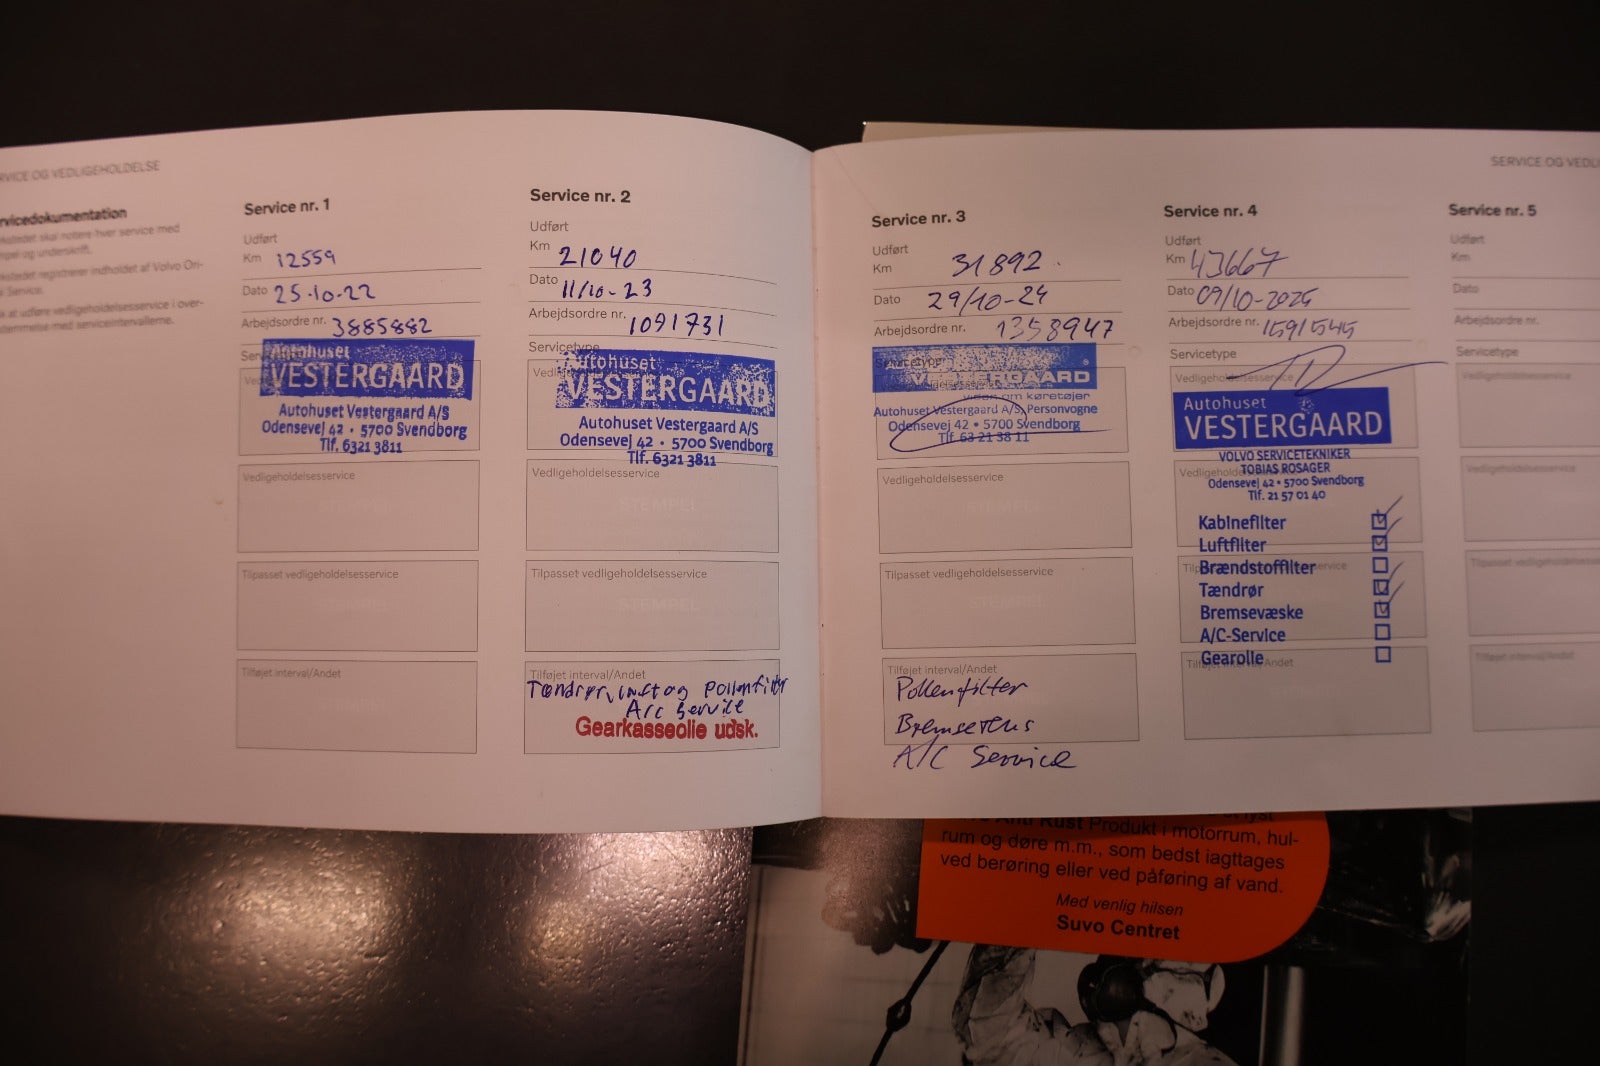 RVICE OG VEDLIGEHOLDELSE
rvicedokumentation
rkstedet skal notere hver service med
mpel og underskrift.
rkstedet registrerer indholdet af Volvo Ori-
Service.
k at udføre vedligeholdelsesservice i over-
stemmelse med serviceintervallerne.
Service nr. 1
Udført
Km 12559
Dato 25-10-22
Arbejdsordre nr. 3885882
Autohuset
VESTERGAARD
Autohuset Vestergaard A/S
Odensevej 42 • 5700 Svendborg
Tlf. 6321 3811
Vedligeholdelsesservice
STEMPEL
Tilpasset vedligeholdelsesservice
STEMPEL
Tilføjet interval/Andet
Service nr. 2
Udført
Km 21040
Dato 11/10-23
Arbejdsordre nr. 1091731
Servicetype
Autohuset
VESTERGAARD
Autohuset Vestergaard A/S
Odensevej 42 • 5700 Svendborg
Tlf. 6321 3811
Vedligeholdelsesservice
STEMPEL
Tilpasset vedligeholdelsesservice
STEMPEL
Tilføjet interval/Andet
Tændrør, luft og Pollenfilter
A/C Service
Gearkasseolie udsk.
SERVICE OG VEDLI
Service nr. 3
Udført
Km 31892
Dato 29/10-24
Arbejdsordre nr. 1358947
Servicetype
viden om køretøjer
Autohuset Vestergaard A/S, Personvogne
Odensevej 42 • 5700 Svendborg
Tlf 63 21 38 11
Vedligeholdelsesservice
STEMPEL
Tilpasset vedligeholdelsesservice
STEMPEL
Tilføjet interval/Andet
Pollenfilter
A/C Service
Service nr. 4
Udført
Km 43667
Dato 09/10-2025
Arbejdsordre nr. 1591545
Servicetype
Vedligeholdelsesservice
Autohuset
VESTERGAARD
VOLVO SERVICETEKNIKER
TOBIAS ROSAGER
Odensevej 42 • 5700 Svendborg
Tlf. 21 57 01 40
Kabinefilter
Luftfilter
Brændstoffilter
Tændrør
Bremsevæske
A/C-Service
Gearolie
Service nr. 5
Udført
Km
Dato
Arbejdsordre nr.
Servicetype
Vedligeholdelsesservice
Vedligeholdelsesservice
Tilpasset vedligeholdelsesservice
Tilføjet interval/Andet
Anti Rust Produkt i motorrum, hul-
rum og døre m.m., som bedst iagttages
ved berøring eller ved påføring af vand.
Med venlig hilsen
Suvo Centret